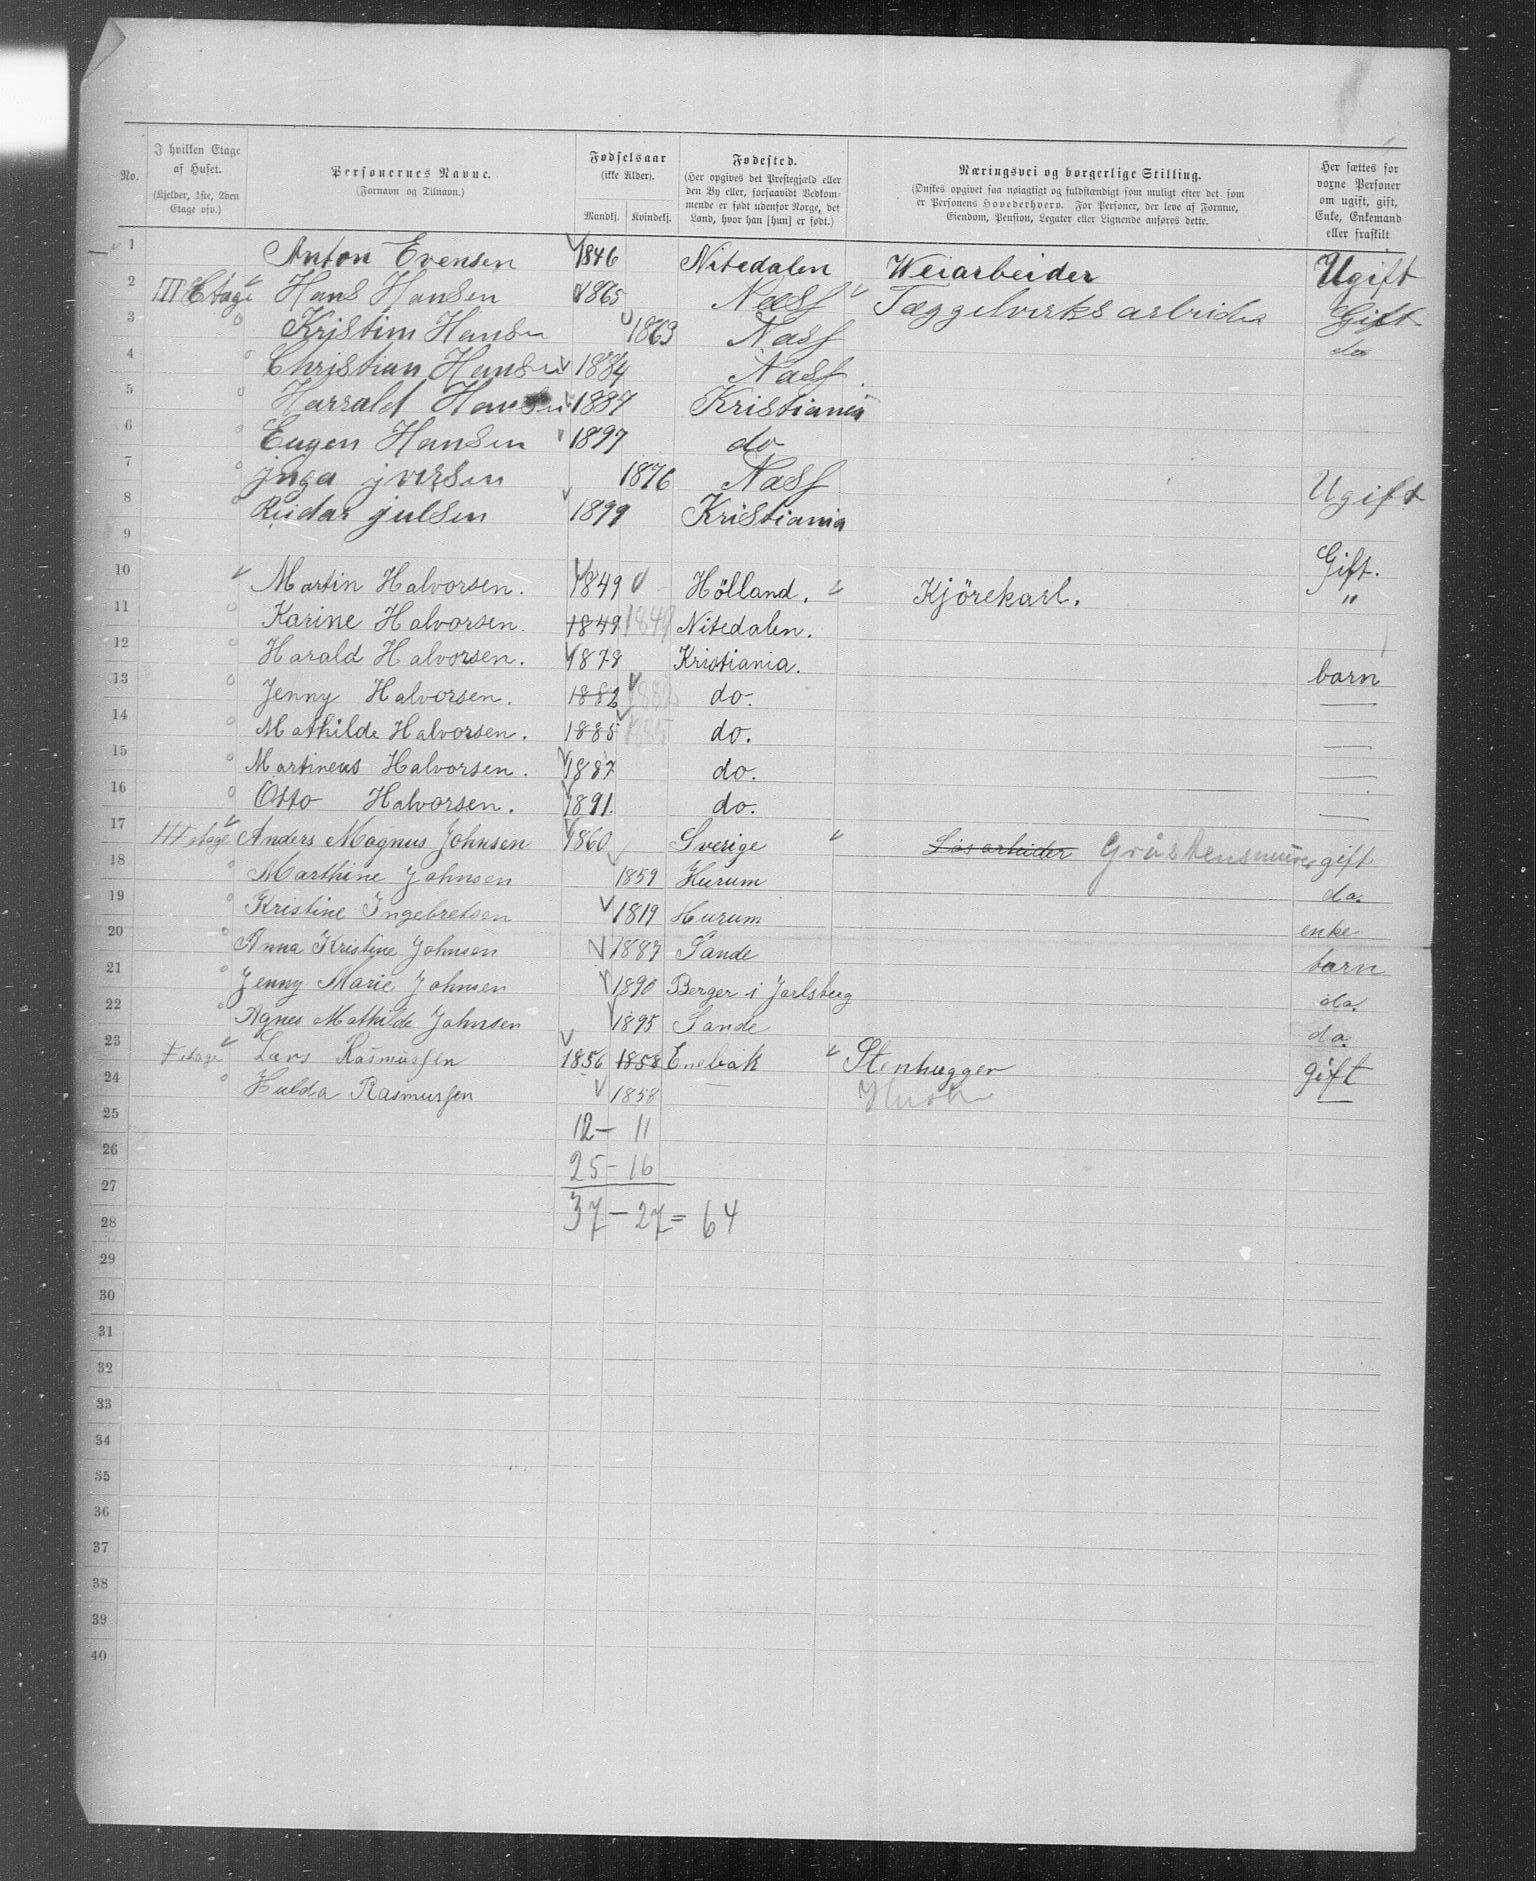 No.
I hvilken Etage af Huset. (Kjelder, 1ste, 2den Etage osv.)
Personernes Navne. (Fornavn og Tilnavn.)
Fødselsaar (ikke Alder). Mandkj. Kvindekj.
Fødested. (Her opgives det Prestegjæld eller den By eller, forsaavidt Vedkommende er født udenfor Norge, det Land, hvor han [hun] er født.)
Næringsvei og borgerlige Stilling. (Ønskes opgivet saa nøiagtigt og fuldstændigt som muligt efter det som er Personens Hovederhverv. For Personer, der leve af Formue, Eiendom, Pension, Legater eller Lignende anføres dette.
Her sættes for voxne Personer om ugift, gift, Enke, Enkemand eller fraskilt
1 Anton Evensen 1846 Nitedalen Weiarbeider Ugift
2 III Etage Hans Hansen 1865 Næss Tæggelverks arbeider Gift
3 Kristine Hansen 1863 Næss do
4 Christian Hansen 1884 Næss
5 Harrald Hansen 1887 Kristiania
6 Eugen Hansen 1897 do
7 jnga jversen 1876 Næss Ugift
8 Reidar julsen 1899 Kristiania
9
10 Martin Halvorsen. 1849 Hölland. Kjörekarl. Gift.
11 Karine Halvorsen. 1849 1849 Nitedalen. "
12 Harald Halvorsen. 1878 Kristiania.
13 Jenny Halvorsen. 1882 1882 do. barn
14 Mathilde Halvorsen. 1885 1885 do. —
15 Martineus Halvorsen. 1887 do. —
16 Otto Halvorsen. 1891. do. —
17 III etage Anders Magnus Johnsen 1860 Sverige Løsarbeider Gråstensmurer gift
18 Marthine Johnsen 1859 Hurum do.
19 Kristine Ingebretsen 1819 Hurum enke
20 Anna Kristine Johnsen 1887 Sande barn
21 Jenny Marie Johnsen 1890 Berger i Jarlsberg do.
22 Agnes Mathilde Johnsen 1895 Sande do.
23 I etage Lars Rasmussen 1856 1858 Enebak Stenhugger gift
24 Hulda Rasmussen 1858 —
25 12 – 11
26 25 – 16
27 37 – 27 = 64
28
29
30
31
32
33
34
35
36
37
38
39
40